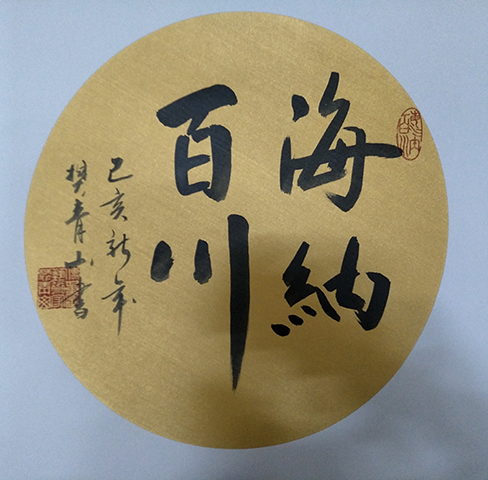 海納
百川
己亥新年
樊青山書